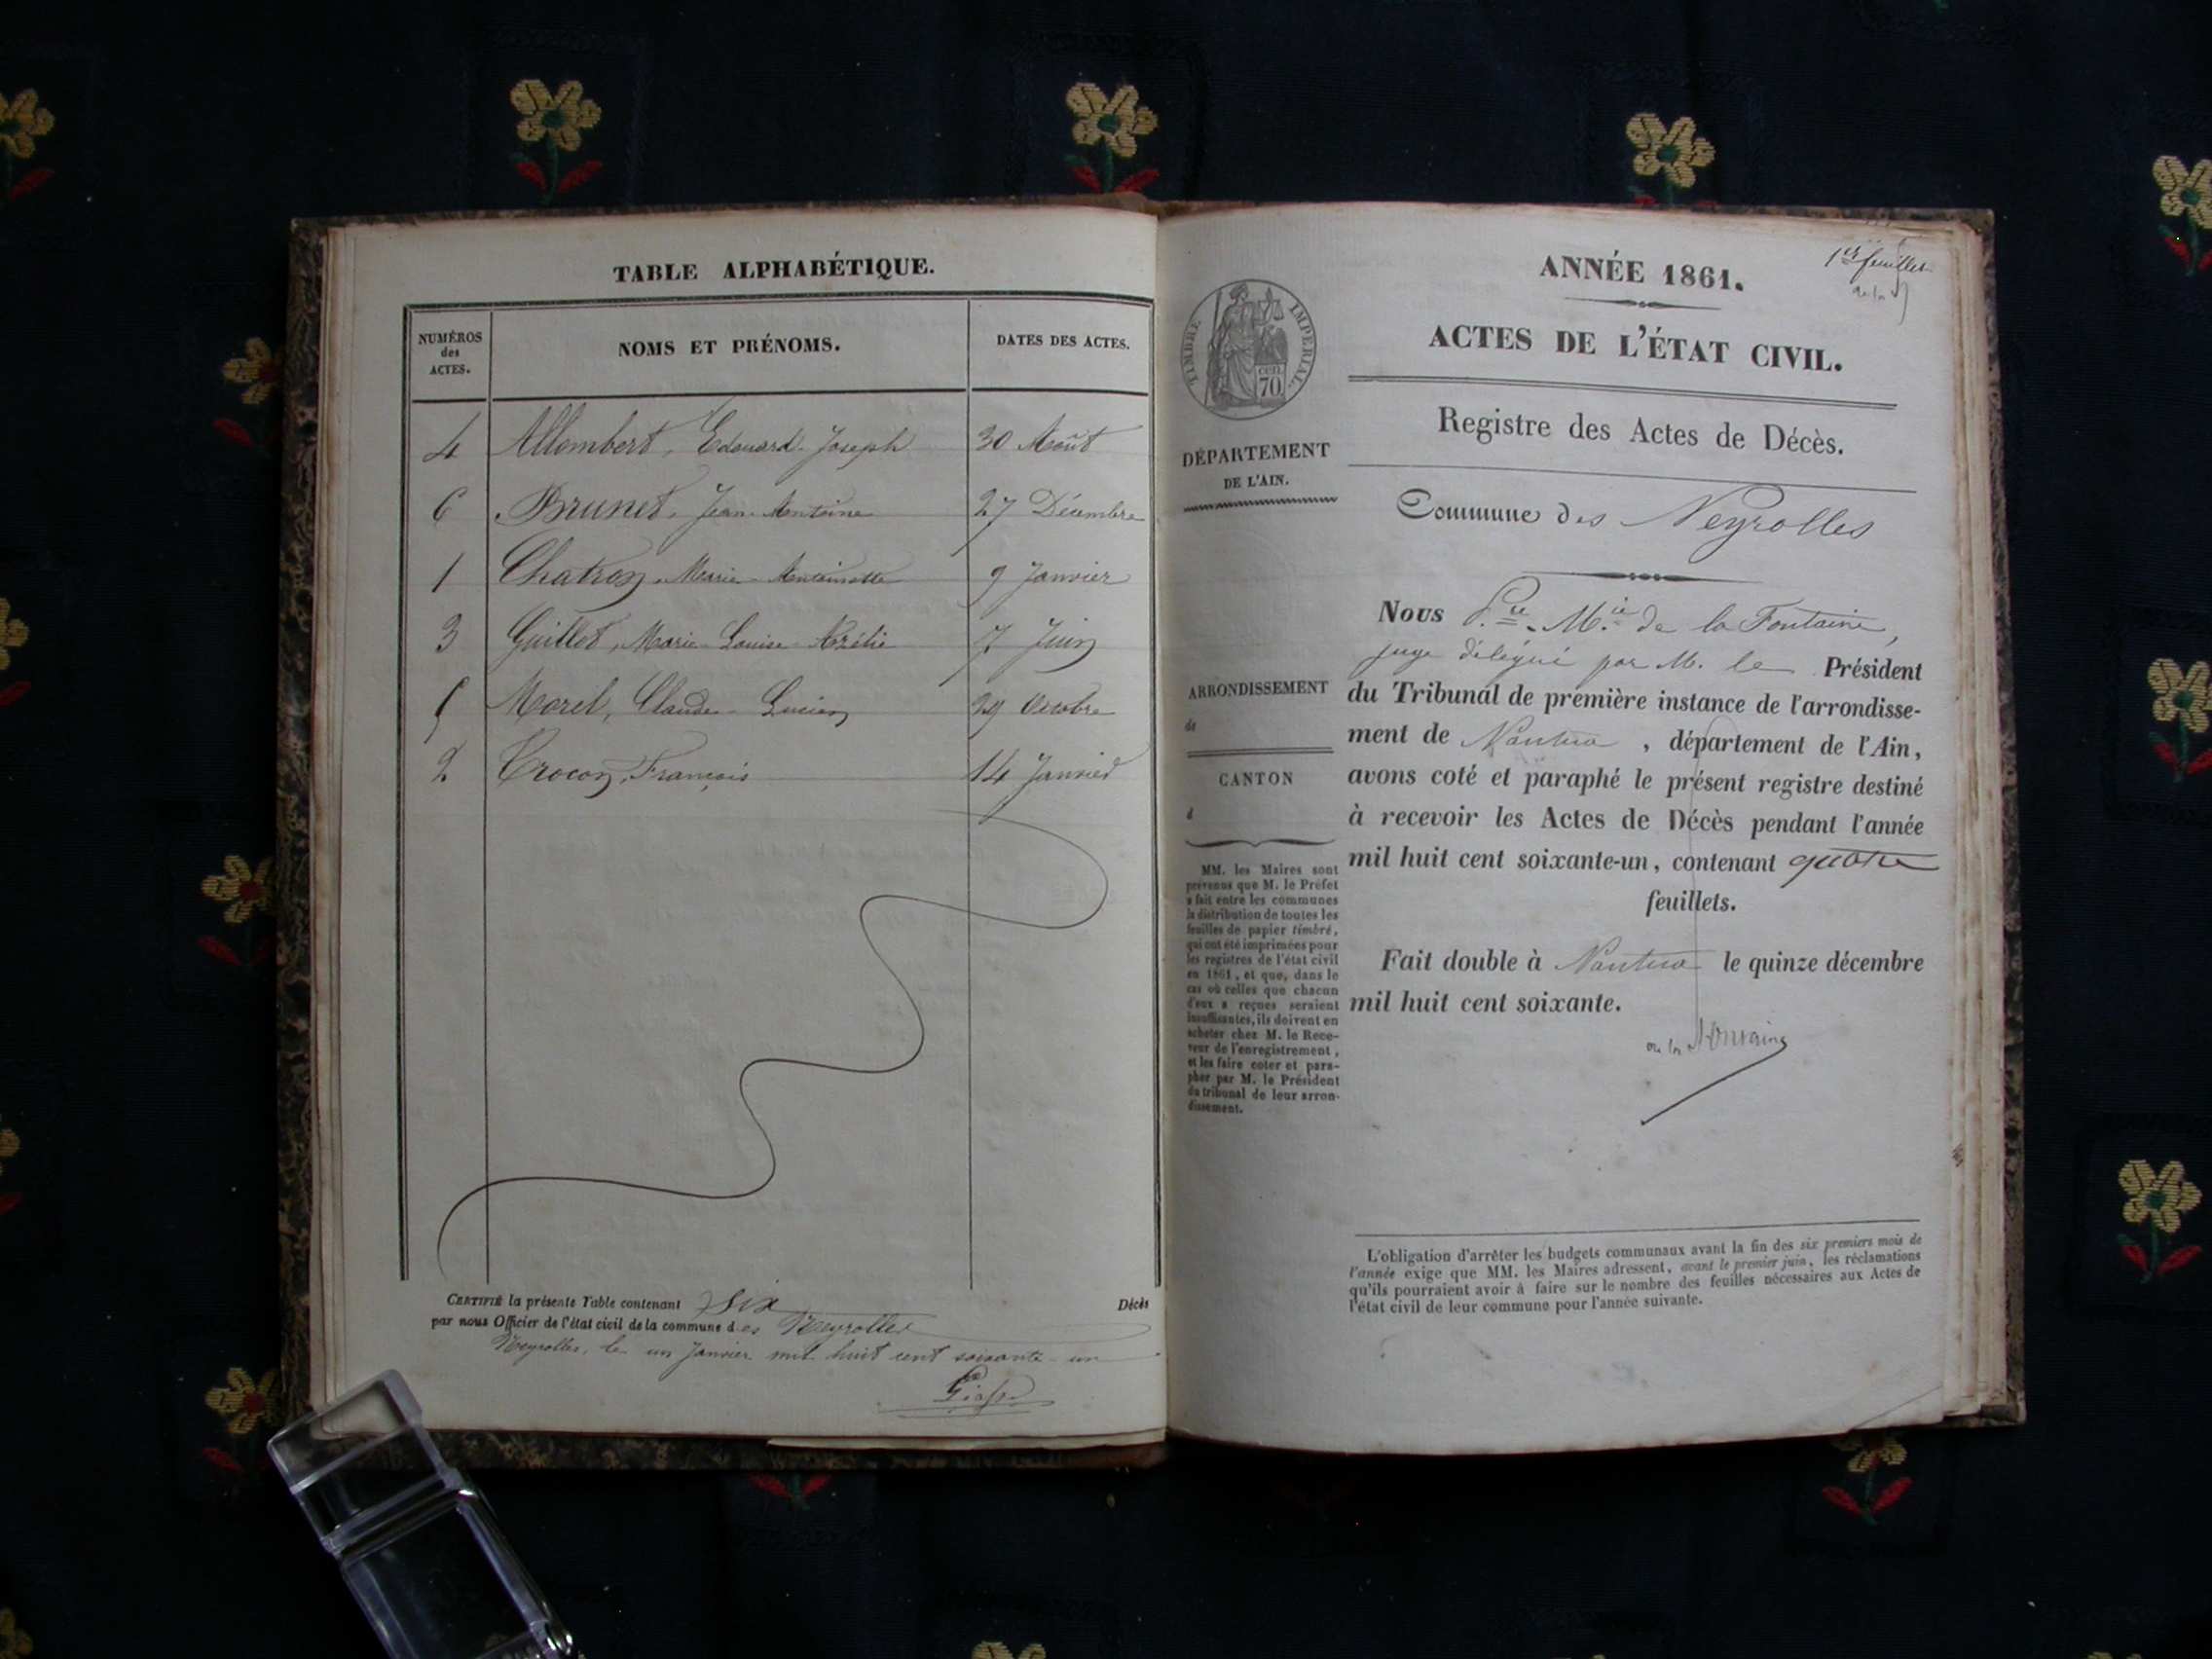 TABLE ALPHABÉTIQUE.
NUMÉROS
des
ACTES.
NOMS ET PRÉNOMS.
DATES DES ACTES.
4 Allombert, Edouard-Joseph 30 Août
6 Brunet, Jean-Antoine 27 Décembre
1 Chatron, Marie-Antoinette 9 Janvier
3 Guillot, Marie-Louise 7 Juin
5 Morel, Claude-Lucien 29 Octobre
2 Crocon, François 14 Janvier
CERTIFIÉ la présente Table contenant six Décès
par nous Officier de l'état civil de la commune des Neyrolles
Neyrolles, le un Janvier mil huit cent soixante-un
1er feuillet
ANNÉE 1861.
ACTES DE L'ÉTAT CIVIL.
Registre des Actes de Décès.
Commune des Neyrolles
TIMBRE IMPÉRIAL.
cen.
70
DÉPARTEMENT
DE L'AIN.
ARRONDISSEMENT
de
CANTON
d
MM. les Maires sont
prévenus que M. le Préfet
a fait entre les communes
la distribution de toutes les
feuilles de papier timbré,
qui ont été imprimées pour
les registres de l'état civil
en 1861, et que, dans le
cas où celles que chacun
d'eux a reçues seraient
insuffisantes, ils doivent en
acheter chez M. le Rece-
veur de l'enregistrement,
et les faire coter et para-
pher par M. le Président
du tribunal de leur arron-
dissement.
Nous P.re M.ie de la Fontaine,
juge délégué par M. le Président
du Tribunal de première instance de l'arrondisse-
ment de Nantua, département de l'Ain,
avons coté et paraphé le présent registre destiné
à recevoir les Actes de Décès pendant l'année
mil huit cent soixante-un, contenant quatre
feuillets.
Fait double à Nantua le quinze décembre
mil huit cent soixante.
de la Fontaine
L'obligation d'arrêter les budgets communaux avant la fin des six premiers mois de
l'année exige que MM. les Maires adressent, avant le premier juin, les réclamations
qu'ils pourraient avoir à faire sur le nombre des feuilles nécessaires aux Actes de
l'état civil de leur commune pour l'année suivante.